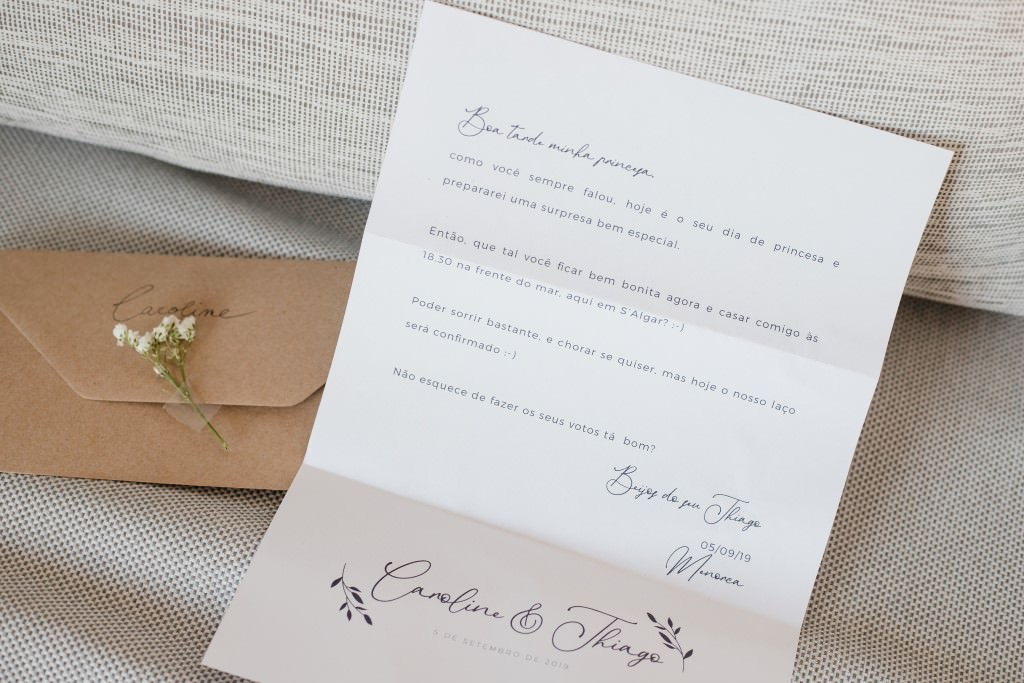 Caroline
Boa tarde minha princesa,
como você sempre falou, hoje é o seu dia de princesa e
prepararei uma surpresa bem especial.
Então, que tal você ficar bem bonita agora e casar comigo às
18.30 na frente do mar, aqui em S'Algar? :-)
Poder sorrir bastante, e chorar se quiser, mas hoje o nosso laço
será confirmado :-)
Não esquece de fazer os seus votos tá bom?
Beijos do seu Thiago
05/09/19
Menorca
Caroline & Thiago
5 DE SETEMBRO DE 2019